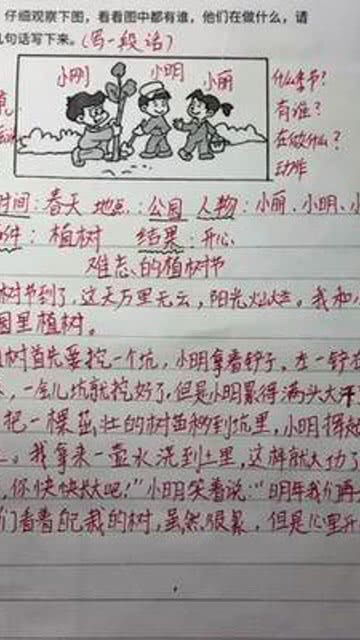 仔细观察下图，看看图中都有谁，他们在做什么，请
几句话写下来。（写一段话）
小刚 小明 小丽
什么季节？
有谁？
在做什么？
动作
时间：春天 地点：公园 人物：小丽、小明、小
件：植树 结果：开心
难忘的植树节
树节到了，这天万里无云，阳光灿烂。我和小
园里植树。
树首先要挖一个坑，小明拿着铲子，一铲
一会儿坑就挖好了，但是小明累得满头大汗
把一棵茁壮的树苗移到坑里，小明
。我拿来一壶水浇到土里，这样就大功了
，你快快长大吧！”小明笑着说：“明年我们再
们看着自己栽的树，虽然很累，但是心里开